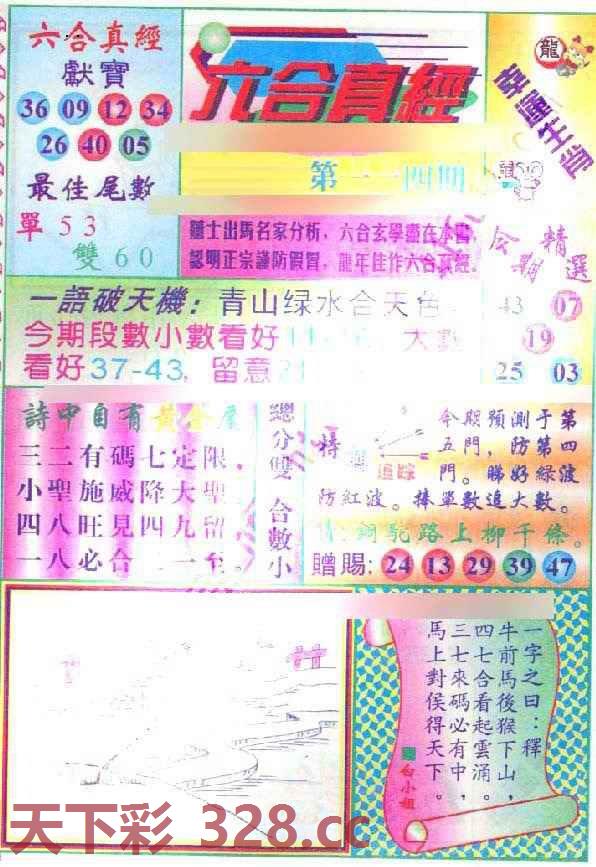 六合真經
獻寶
36 09 12 34
26 40 05
最佳尾數
單 5 3
雙 6 0
六合真經
第一一四期
龍
幸運生肖
鼠
隱士出馬名家分析，六合玄學盡在本書
認明正宗謹防假冒，龍年佳作六合真經.
精選
43 07
19
25 03
一語破天機：青山绿水合天色
今期段數小數看好 大數
看好37-43, 留意
詩中自有黃金屋
三二有碼七定限。
小聖施威降大聖
四八旺見四九留
一八必合二一至。
總分雙 合數小
特
追踪
今期預測于第
五門，防第四
門。睇好綠波
防紅波。捧單數追大數。
銅駝路上柳千條。
贈賜: 24 13 29 39 47
一字之曰：釋
牛前馬後猴下山，
四七合看起雲涌。
三七來碼必有中，
馬上對侯得天下。
白小姐
天下彩 328.cc